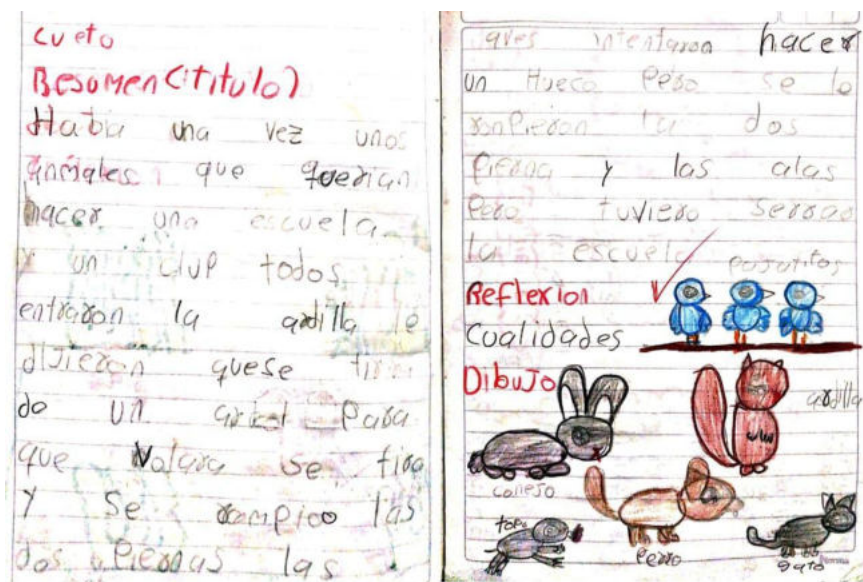 cueto
Resumen (titulo)
Habia una vez unos
animales que querian
hacer una escuela
y un clup todos
entraron la ardilla le
dijieron quese tira
do un arbol para
que volara se tira
y se rompico las
dos piernas las
aves intentaron hacer
un Hueco pero se lo
ronpieron la dos
pierna y las alas
pero tuviero serrao
la escuela
pajaritos
Reflexion
Cualidades
Dibujo
ardilla
conejo
topo
perro
gato